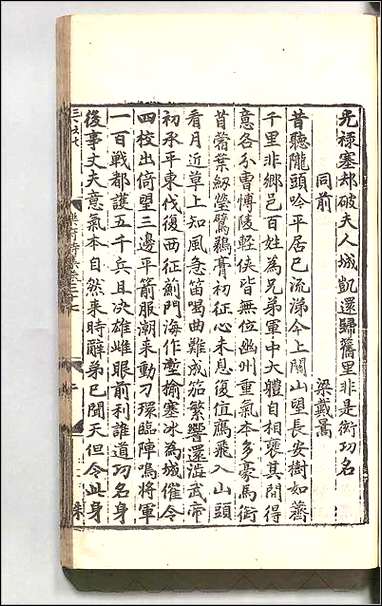 光祿塞却破夫人城凱還歸舊里非是衒功名
同前
梁戴暠
昔聽隴頭吟平居已流涕今上關山望長安樹如薺
千里非鄉邑百姓為兄弟軍中大體自相褒其間得
意各分曹博陵輕俠皆無位幽州重氣本多豪馬銜
苜蓿葉劒瑩鸊鵜膏初征心未息復值鴈飛入山頭
看月近草上知風急笛喝曲難成笳繁響還澁武帝
初承平東伐復西征薊門海作塹榆塞冰為城催令
四校出倚望三邊平箭服潮來動刀環臨陣鳴將軍
一百戰都護五千兵且決雄雌眼前利誰道功名身
後事丈夫意氣本自然來時辭弟已聞天但令此身
樂府詩集卷二十七
朱